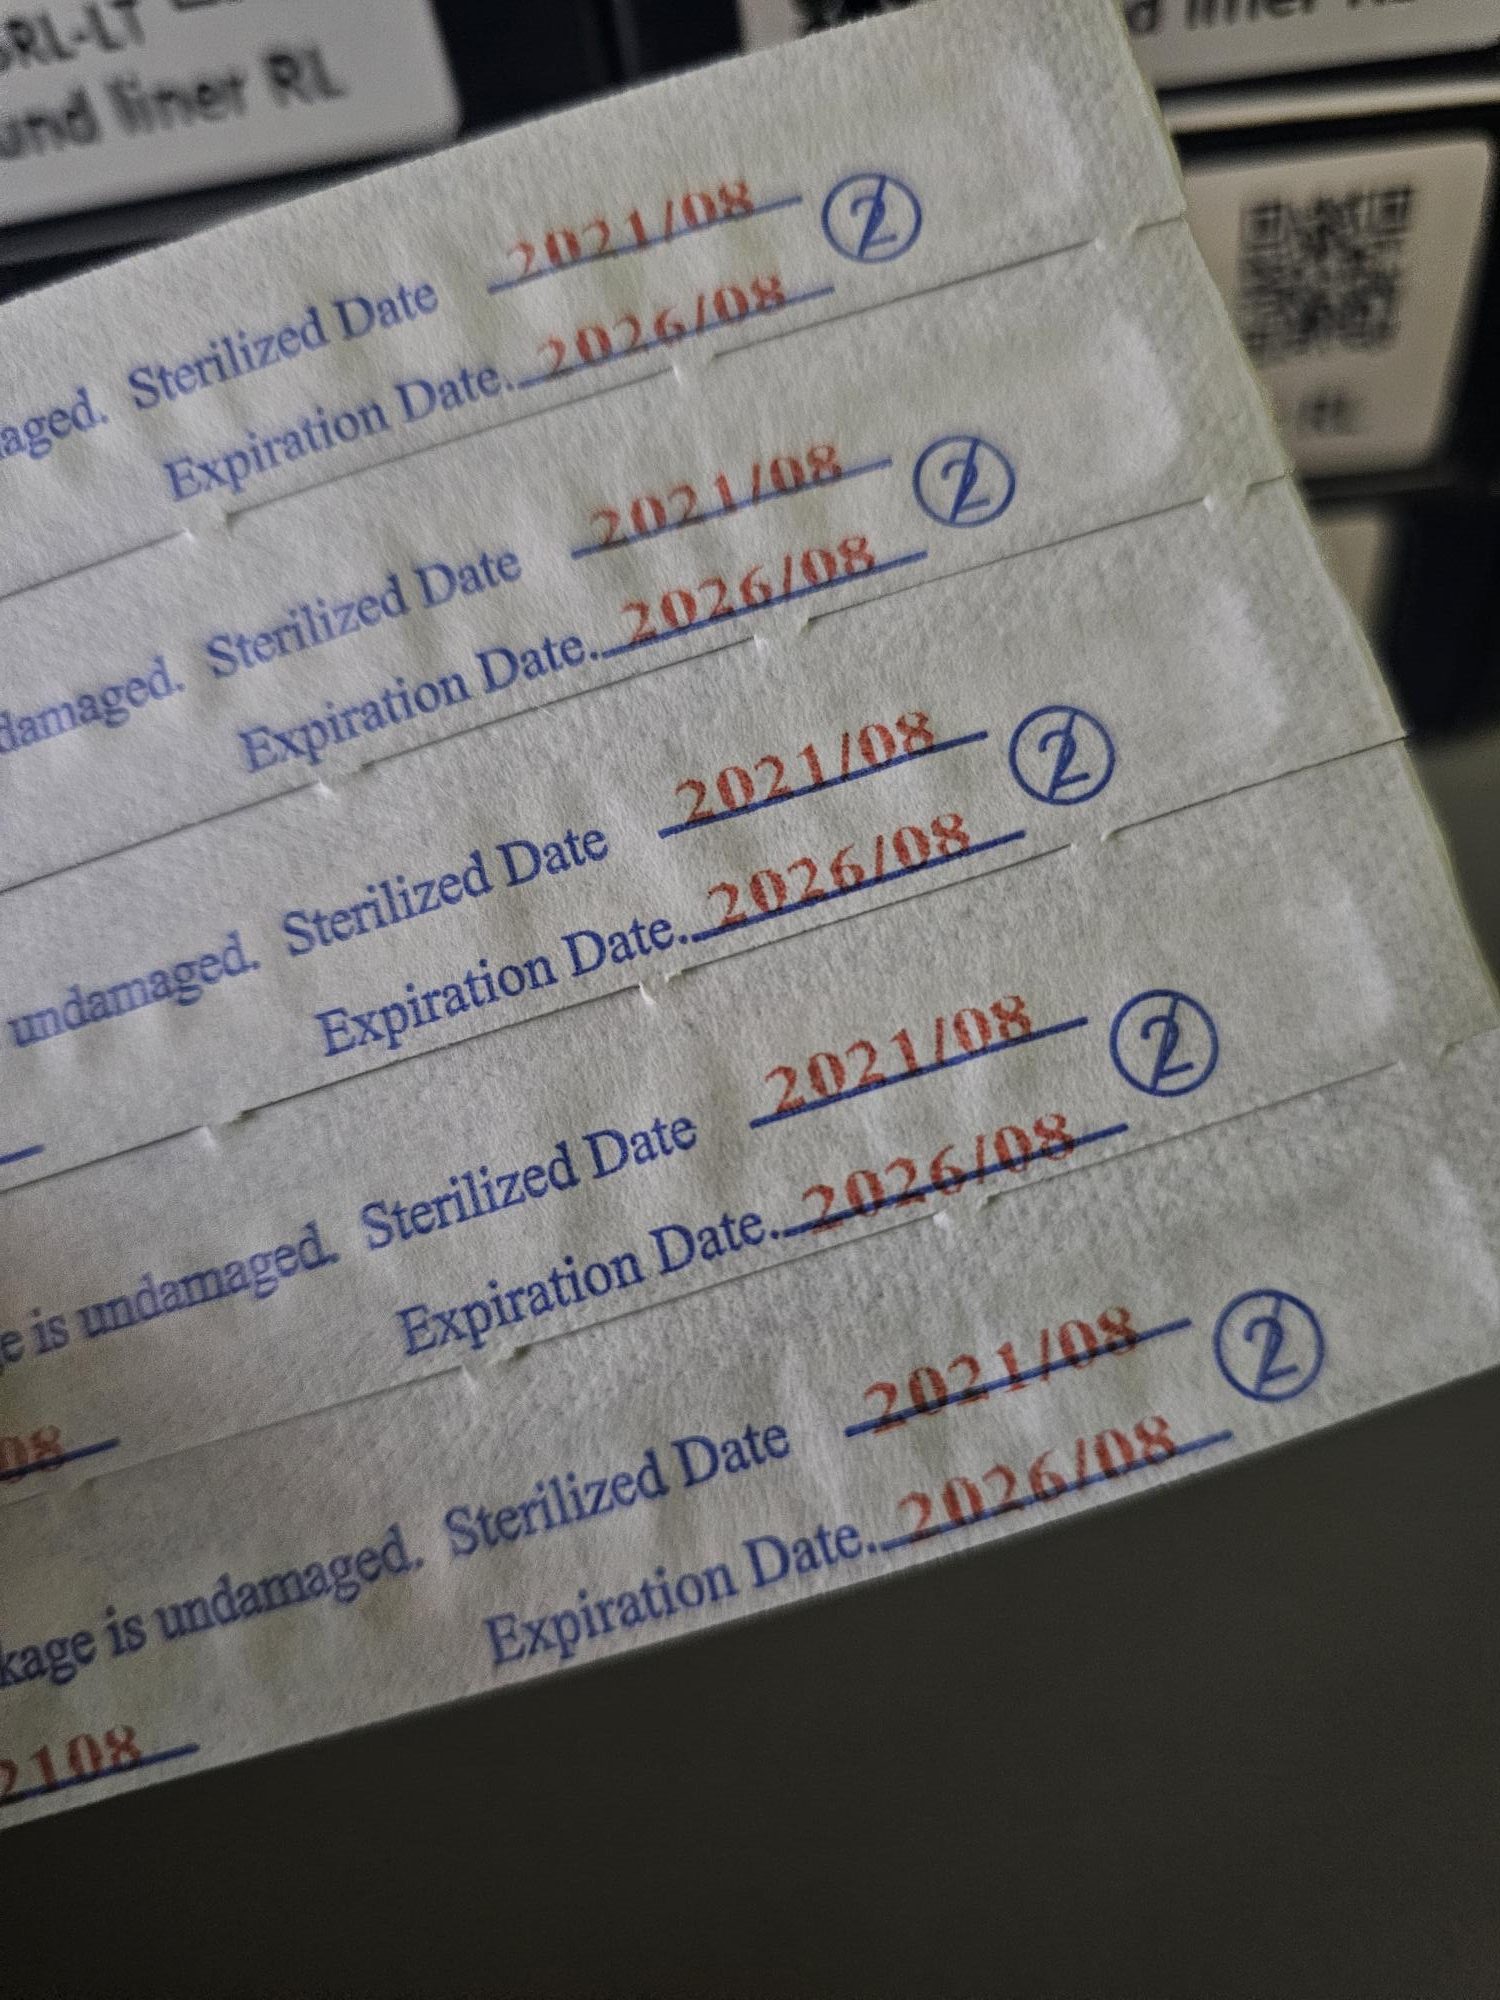 RL-LT
und liner RL
d liner
RL
aged. Sterilized Date 2021/08 ②
Expiration Date. 2026/08
damaged. Sterilized Date 2021/08 ②
Expiration Date. 2026/08
undamaged. Sterilized Date 2021/08 ②
Expiration Date. 2026/08
e is undamaged. Sterilized Date 2021/08 ②
Expiration Date. 2026/08
08
kage is undamaged. Sterilized Date 2021/08 ②
Expiration Date. 2026/08
2108